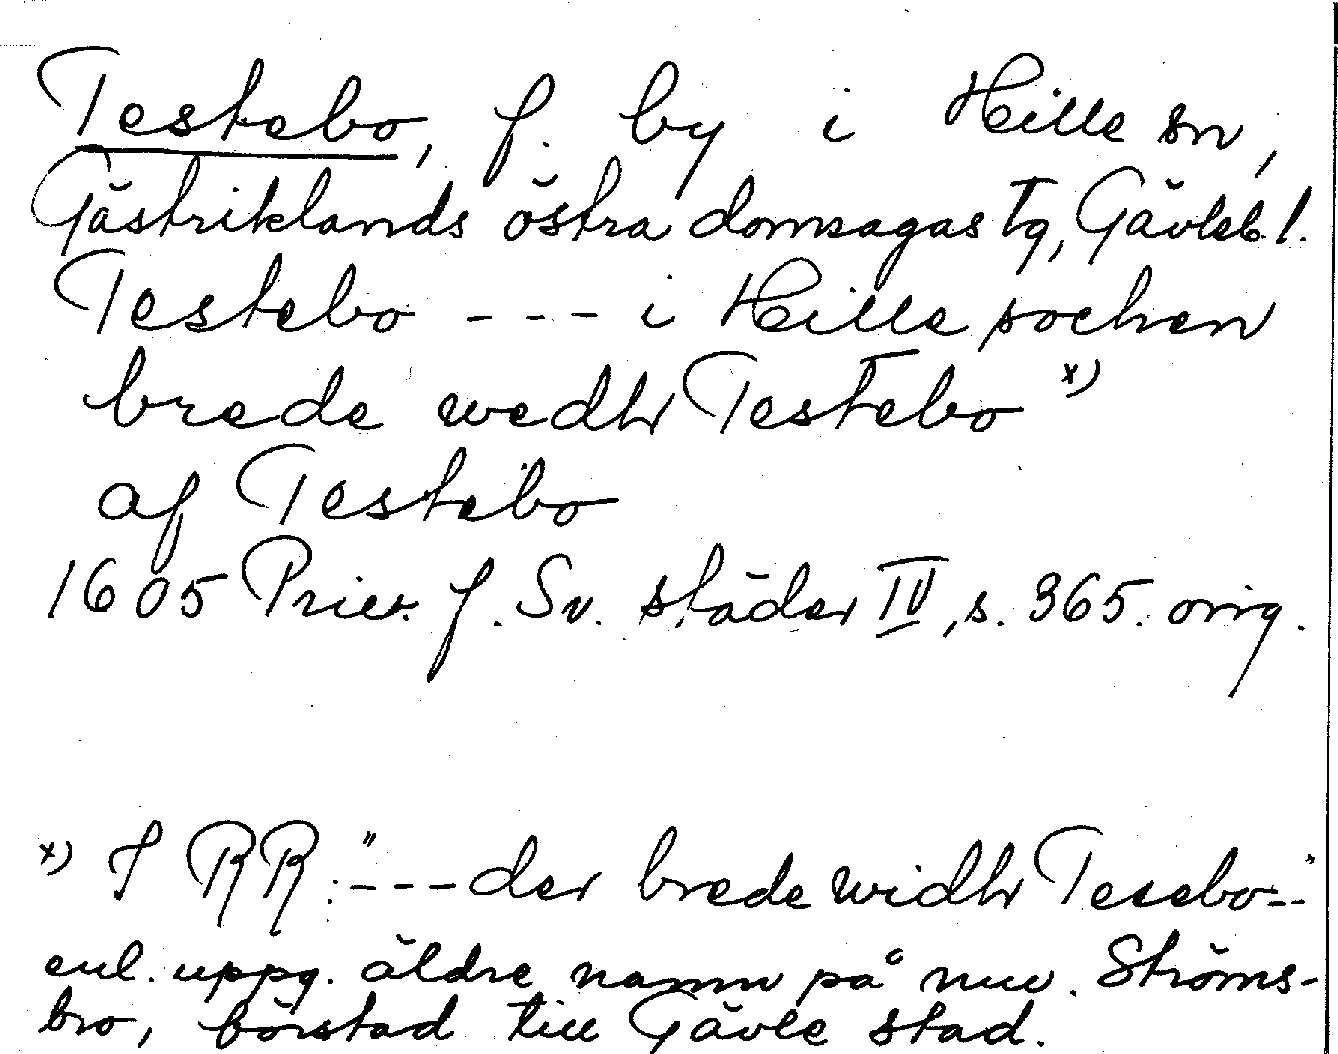 Testebo, f. by i Hille sn,
Gästriklands östra domsagas tg, Gävleb. l.
Testebo --- i Hille sochen
brede wedhr Testebo x)
af Testebo
1605 Priv. f. Sv. städer IV, s. 365. orig.
x) I RR: "--- der brede widhr Tesebo--"
enl. uppg. äldre namn på nuv. Ströms-
bro, förstad till Gävle stad.